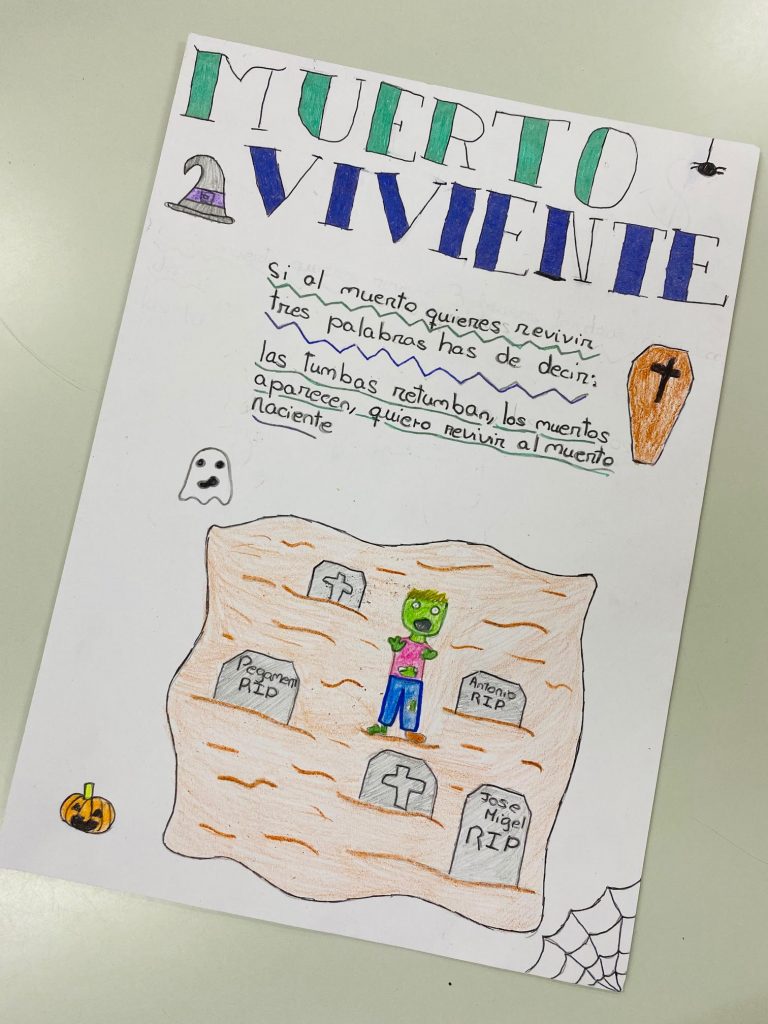 MUERTO
VIVIENTE
Si al muerto quieres revivir
tres palabras has de decir:
las tumbas retumban, los muertos
aparecen, quiero revivir al muerto
naciente
Pegament
RIP
Antonio
RIP
Jose
Migel
RIP